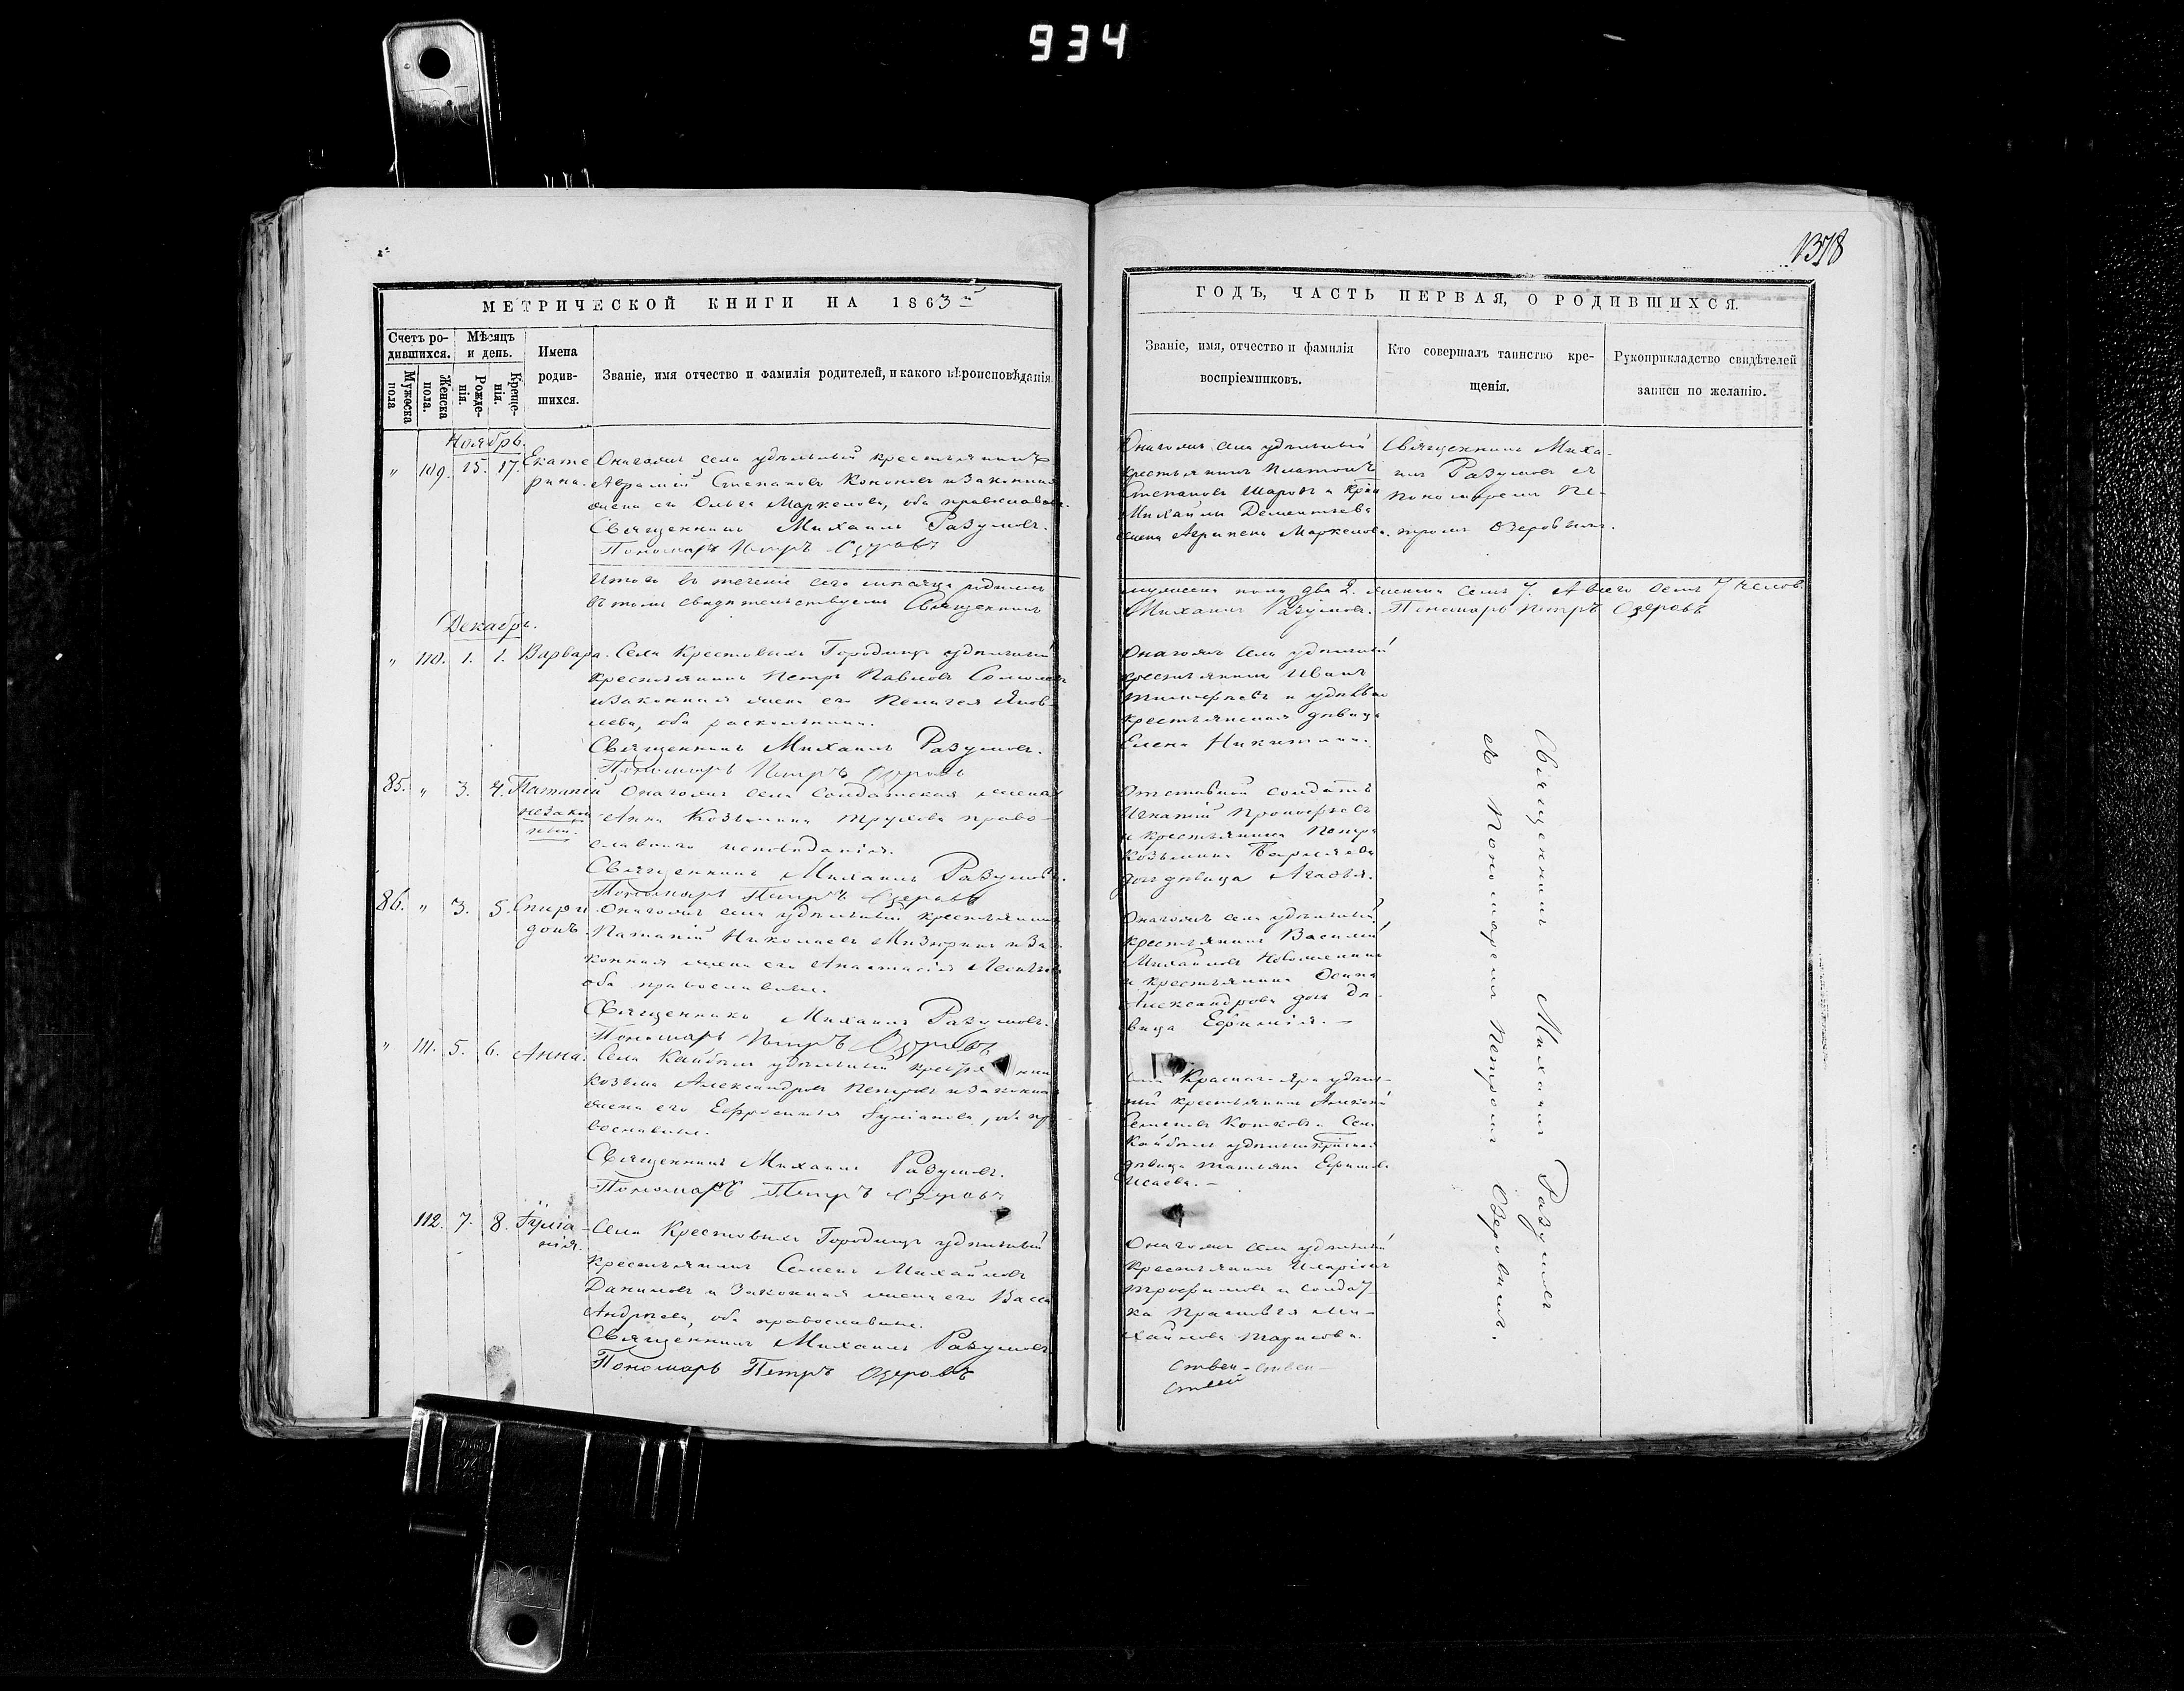 934
1318
МЕТРИЧЕСКОЙ КНИГИ НА 1863й
Счетъ ро-
дившихся.
Мужеска пола
Женска пола.
Мѣсяцъ
и день.
Рожде-
нія.
Креще-
нія.
Имена
родив-
шихся.
Званіе, имя отчество и фамилія родителей, и какого вѣроисповѣданія.
Ноябрь.
" 109. 15. 17. Екате
рина.
Означеннаго села удѣльный крестьянинъ
Авраамій Степановъ Кононовъ и законная
жена его Ольга Маркелова, оба православные.
Священникъ Михаилъ Разумовъ.
Пономарь Петръ Озеровъ
Итого въ теченіе сего мѣсяца родилось
въ томъ свидѣтельствуемъ Священникъ
Декабрь.
" 110. 1. 1. Варвара.
Села Крестовыхъ Городищъ удѣльный
крестьянинъ Петръ Павловъ
и законная жена его Пелагея Яков-
лева, оба раскольники.
Священникъ Михаилъ Разумовъ.
Пономарь Петръ Озеровъ
85. " 3. 4. Патапій
незакон
ный.
села солдатская жена
Анна Козьмина право-
славнаго исповѣданія.
Священникъ Михаилъ Разумовъ.
Пономарь Петръ Озеровъ
86. " 3. 5. Спири
донъ.
села удѣльный крестьянинъ
Патапій Николаевъ и за-
конная жена его Анастасія
оба православные.
Священникъ Михаилъ Разумовъ.
Пономарь Петръ Озеровъ
" 111. 5. 6. Анна.
Села Кайбелъ удѣльный
Козьма Александровъ Петровъ и законная
жена его Ефросинія Іуліанова, оба пра
вославные.
Священникъ Михаилъ Разумовъ.
Пономарь Петръ Озеровъ
112. 7. 8. Іуліа-
нія.
Села Крестовыхъ Городищъ удѣльный
крестьянинъ Семенъ Михайловъ
Даниловъ и законная жена его Васса
Андреева, оба православные.
Священникъ Михаилъ Разумовъ
Пономарь Петръ Озеровъ
ГОДЪ, ЧАСТЬ ПЕРВАЯ, О РОДИВШИХСЯ.
Званіе, имя, отчество и фамилія
воспріемниковъ.
Кто совершалъ таинство кре-
щенія.
Рукоприкладство свидѣтелей
записи по желанію.
села удѣльный
крестьянинъ Платонъ
Степановъ Шаровъ и
Михайлы Дементьева
жена Агрипена Маркелова.
Священникъ Миха-
илъ Разумовъ съ
пономаремъ Пе-
тромъ Озеровымъ.
мужеска пола два 2. женска семь 7. А всего семь 7 челов.
Михаилъ Разумовъ. Пономарь Петръ Озеровъ
села удѣльный
крестьянинъ Иванъ
Тимофеевъ и удѣльная
крестьянская дѣвица
Елена Никитина.
Отставной солдатъ
Игнатій Прокофьевъ
и крестьянина Петра
Козьмина
дочь дѣвица Агафья.
села удѣльный
крестьянинъ Василій
Михайловъ
и крестьянина Осипа
Александрова дочь дѣ-
вица Ефимія.
Краснаго Яра удѣль-
ный крестьянинъ Алексѣй
Семеновъ Котковъ. Села
Кайбелъ
дѣвица Татьяна
Исаева.
села удѣльный
крестьянинъ Иларіонъ
Трофимовъ и солдат
ка Прасковья Ми-
хайлова Тарасова.
ствен-ствен-
Священникъ Михаилъ Разумовъ
съ Пономаремъ Петромъ Озеровымъ.